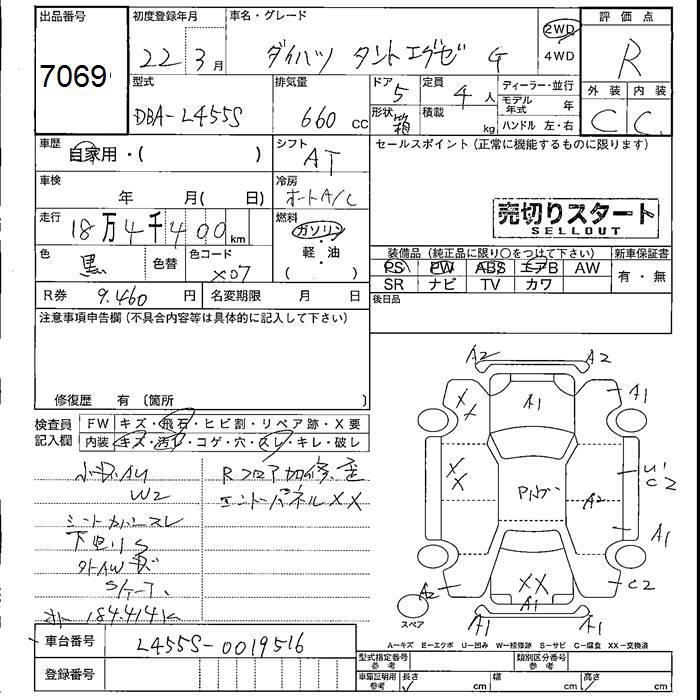 出品番号
7069
初度登録年月
22年3月
車名・グレード
ダイハツ タントエグゼ G
2WD
4WD
評価点
R
外装 内装
C C
型式
DBA-L455S
排気量
660 cc
ドア 5
形状 箱
定員 4 人
積載 kg
ディーラー・並行
モデル年式 年
ハンドル 左・右
車歴
自家用・( )
シフト
AT
セールスポイント (正常に機能するものに限ります)
車検
年 月( 日)
冷房
オートA/C
走行
18万4千400km
燃料
ガソリン
軽・油
( )
売切りスタート
SELLOUT
色
黒
色替
色コード
X07
装備品 (純正品に限り○をつけて下さい)
新車保証書
PS PW ABS エアB AW
SR ナビ TV カワ
有・無
R券 9.460 円
名変期限 月 日
後日品
注意事項申告欄 (不具合内容等は具体的に記入して下さい)
修復歴 有 〔箇所 〕
検査員記入欄
FW キズ・飛石・ヒビ割・リペア跡・X要
内装 キズ・汚れ・コゲ・穴・スレ・キレ・破レ
小キズ.AU
W2
シートカバースレ
下廻りS
外AWキズ
Rフロア加修.歪
エンドパネルXX
184.414K
車台番号
L455S-0019516
登録番号
A2 A2
A1
XX
A1
XX
U1
C2
A2
A1
XX
A1
A2
C2
A1 A1
スペア
A―キズ E―エクボ U―凹み W―補修跡 S―サビ C―腐食 XX―交換済
型式指定番号 参考
類別区分番号 参考
車庫証明用 参考
長さ cm
幅 cm
高さ cm